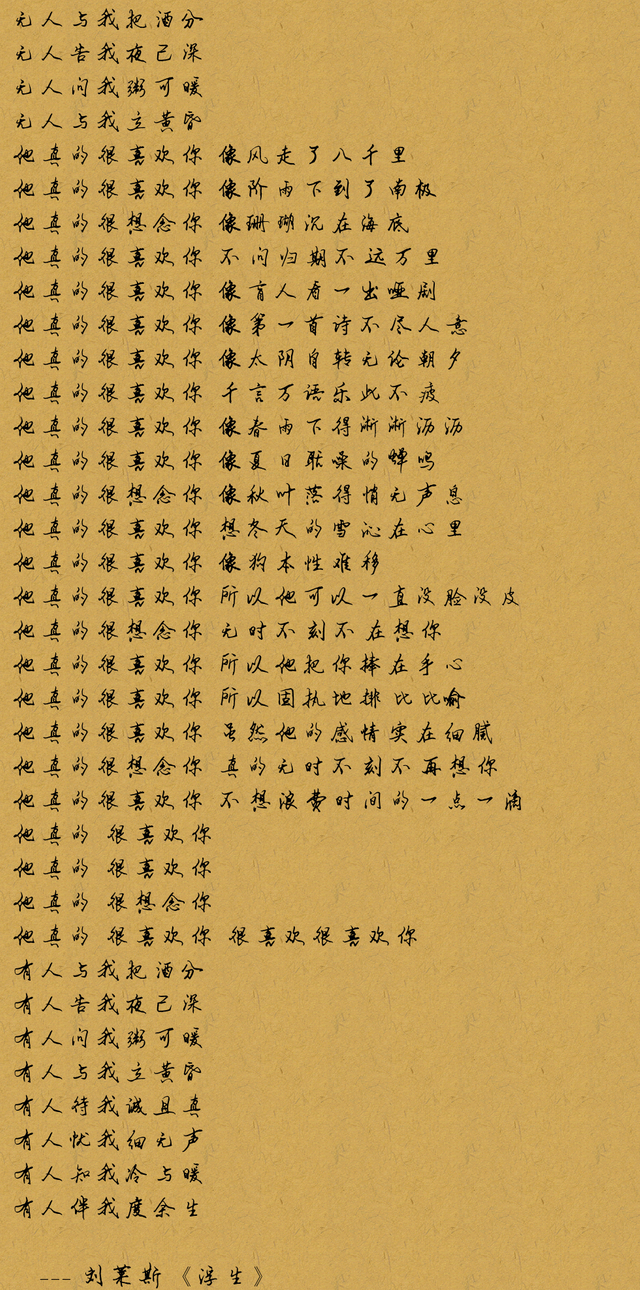 无人与我把酒分
无人告我夜已深
无人问我粥可暖
无人与我立黄昏
他真的很喜欢你 像风走了八千里
他真的很喜欢你 像阶雨下到了南极
他真的很想念你 像珊瑚沉在海底
他真的很喜欢你 不问归期不远万里
他真的很喜欢你 像盲人看一出哑剧
他真的很喜欢你 像第一首诗不尽人意
他真的很喜欢你 像太阴自转无伦朝夕
他真的很喜欢你 千言万语乐此不疲
他真的很喜欢你 像春雨下得淅淅沥沥
他真的很喜欢你 像夏日聒噪的蝉鸣
他真的很想念你 像秋叶落得悄无声息
他真的很喜欢你 想冬天的雪沁在心里
他真的很喜欢你 像狗本性难移
他真的很喜欢你 所以他可以一直没脸没皮
他真的很想念你 无时不刻不在想你
他真的很喜欢你 所以他把你捧在手心
他真的很喜欢你 所以固执地排比比喻
他真的很喜欢你 虽然他的感情实在细腻
他真的很想念你 真的无时不刻不再想你
他真的很喜欢你 不想浪费时间的一点一滴
他真的 很喜欢你
他真的 很喜欢你
他真的 很想念你
他真的 很喜欢你 很喜欢很喜欢你
有人与我把酒分
有人告我夜已深
有人问我粥可暖
有人与我立黄昏
有人待我诚且真
有人忧我细无声
有人知我冷与暖
有人伴我度余生
--- 刘莱斯《浮生》